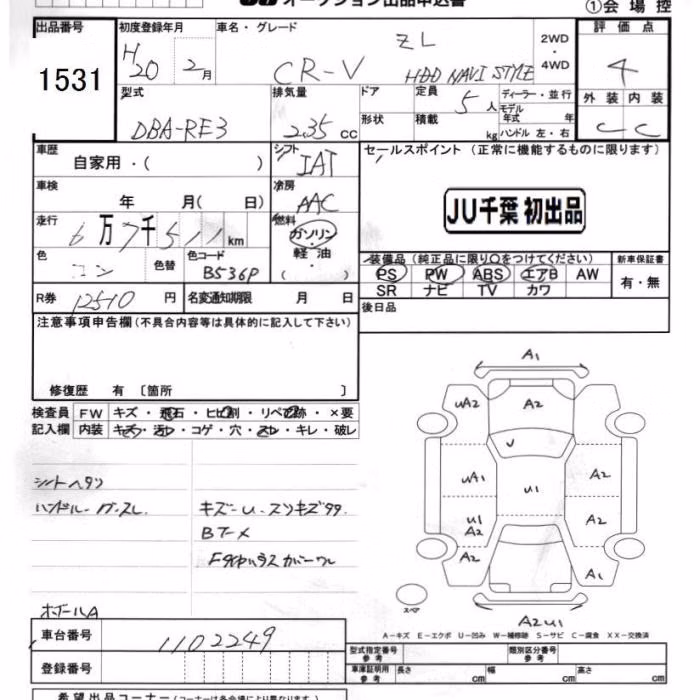 オークション出品申込書
①会場控
出品番号 初度登録年月 車名・グレード 評価点
1531 H20 2月 CR-V ZL HDD NAVI STYLE 2WD・4WD 4
外装 内装
C C
型式 排気量 ドア 定員 ディーラー・並行
DBA-RE3 2.35 cc 5人 モデル年式 年
形状 積載 kg ハンドル 左・右
車歴 シフト セールスポイント(正常に機能するものに限ります)
自家用・( ) IAT
車検 冷房
年 月(日) AAC JU千葉 初出品
走行 燃料
6万7千511km ガソリン・軽油・( )
色 色替 色コード 装備品(純正品に限り○をつけてください) 新車保証書
コン B536P PS PW ABS エアB AW 有・無
SR ナビ TV カワ
R券 12510円 名変通知期限 月 日 後日品
注意事項申告欄(不具合内容等は具体的に記入して下さい)
修復歴 有 〔箇所 〕
検査員 FW キズ・飛石・ヒビ割・リペア跡・×要
記入欄 内装 キズ・汚レ・コゲ・穴・スレ・キレ・破レ
シートヘタリ
ハンドルースレ キズーU.スリキズ
A1
UA2 A2
UA1 U1 A2
U1 A2 A2
A2 A1
スペア
A2U1
A－キズ E－エクボ U－凹み W－補修跡 S－サビ C－腐食 XX－交換済
車台番号 1102249
登録番号
型式指定番号 参考 類別区分番号 参考
車庫証明用 参考 長さ cm 幅 cm 高さ cm
希望出品コーナー(コーナーは各会場により異なります)